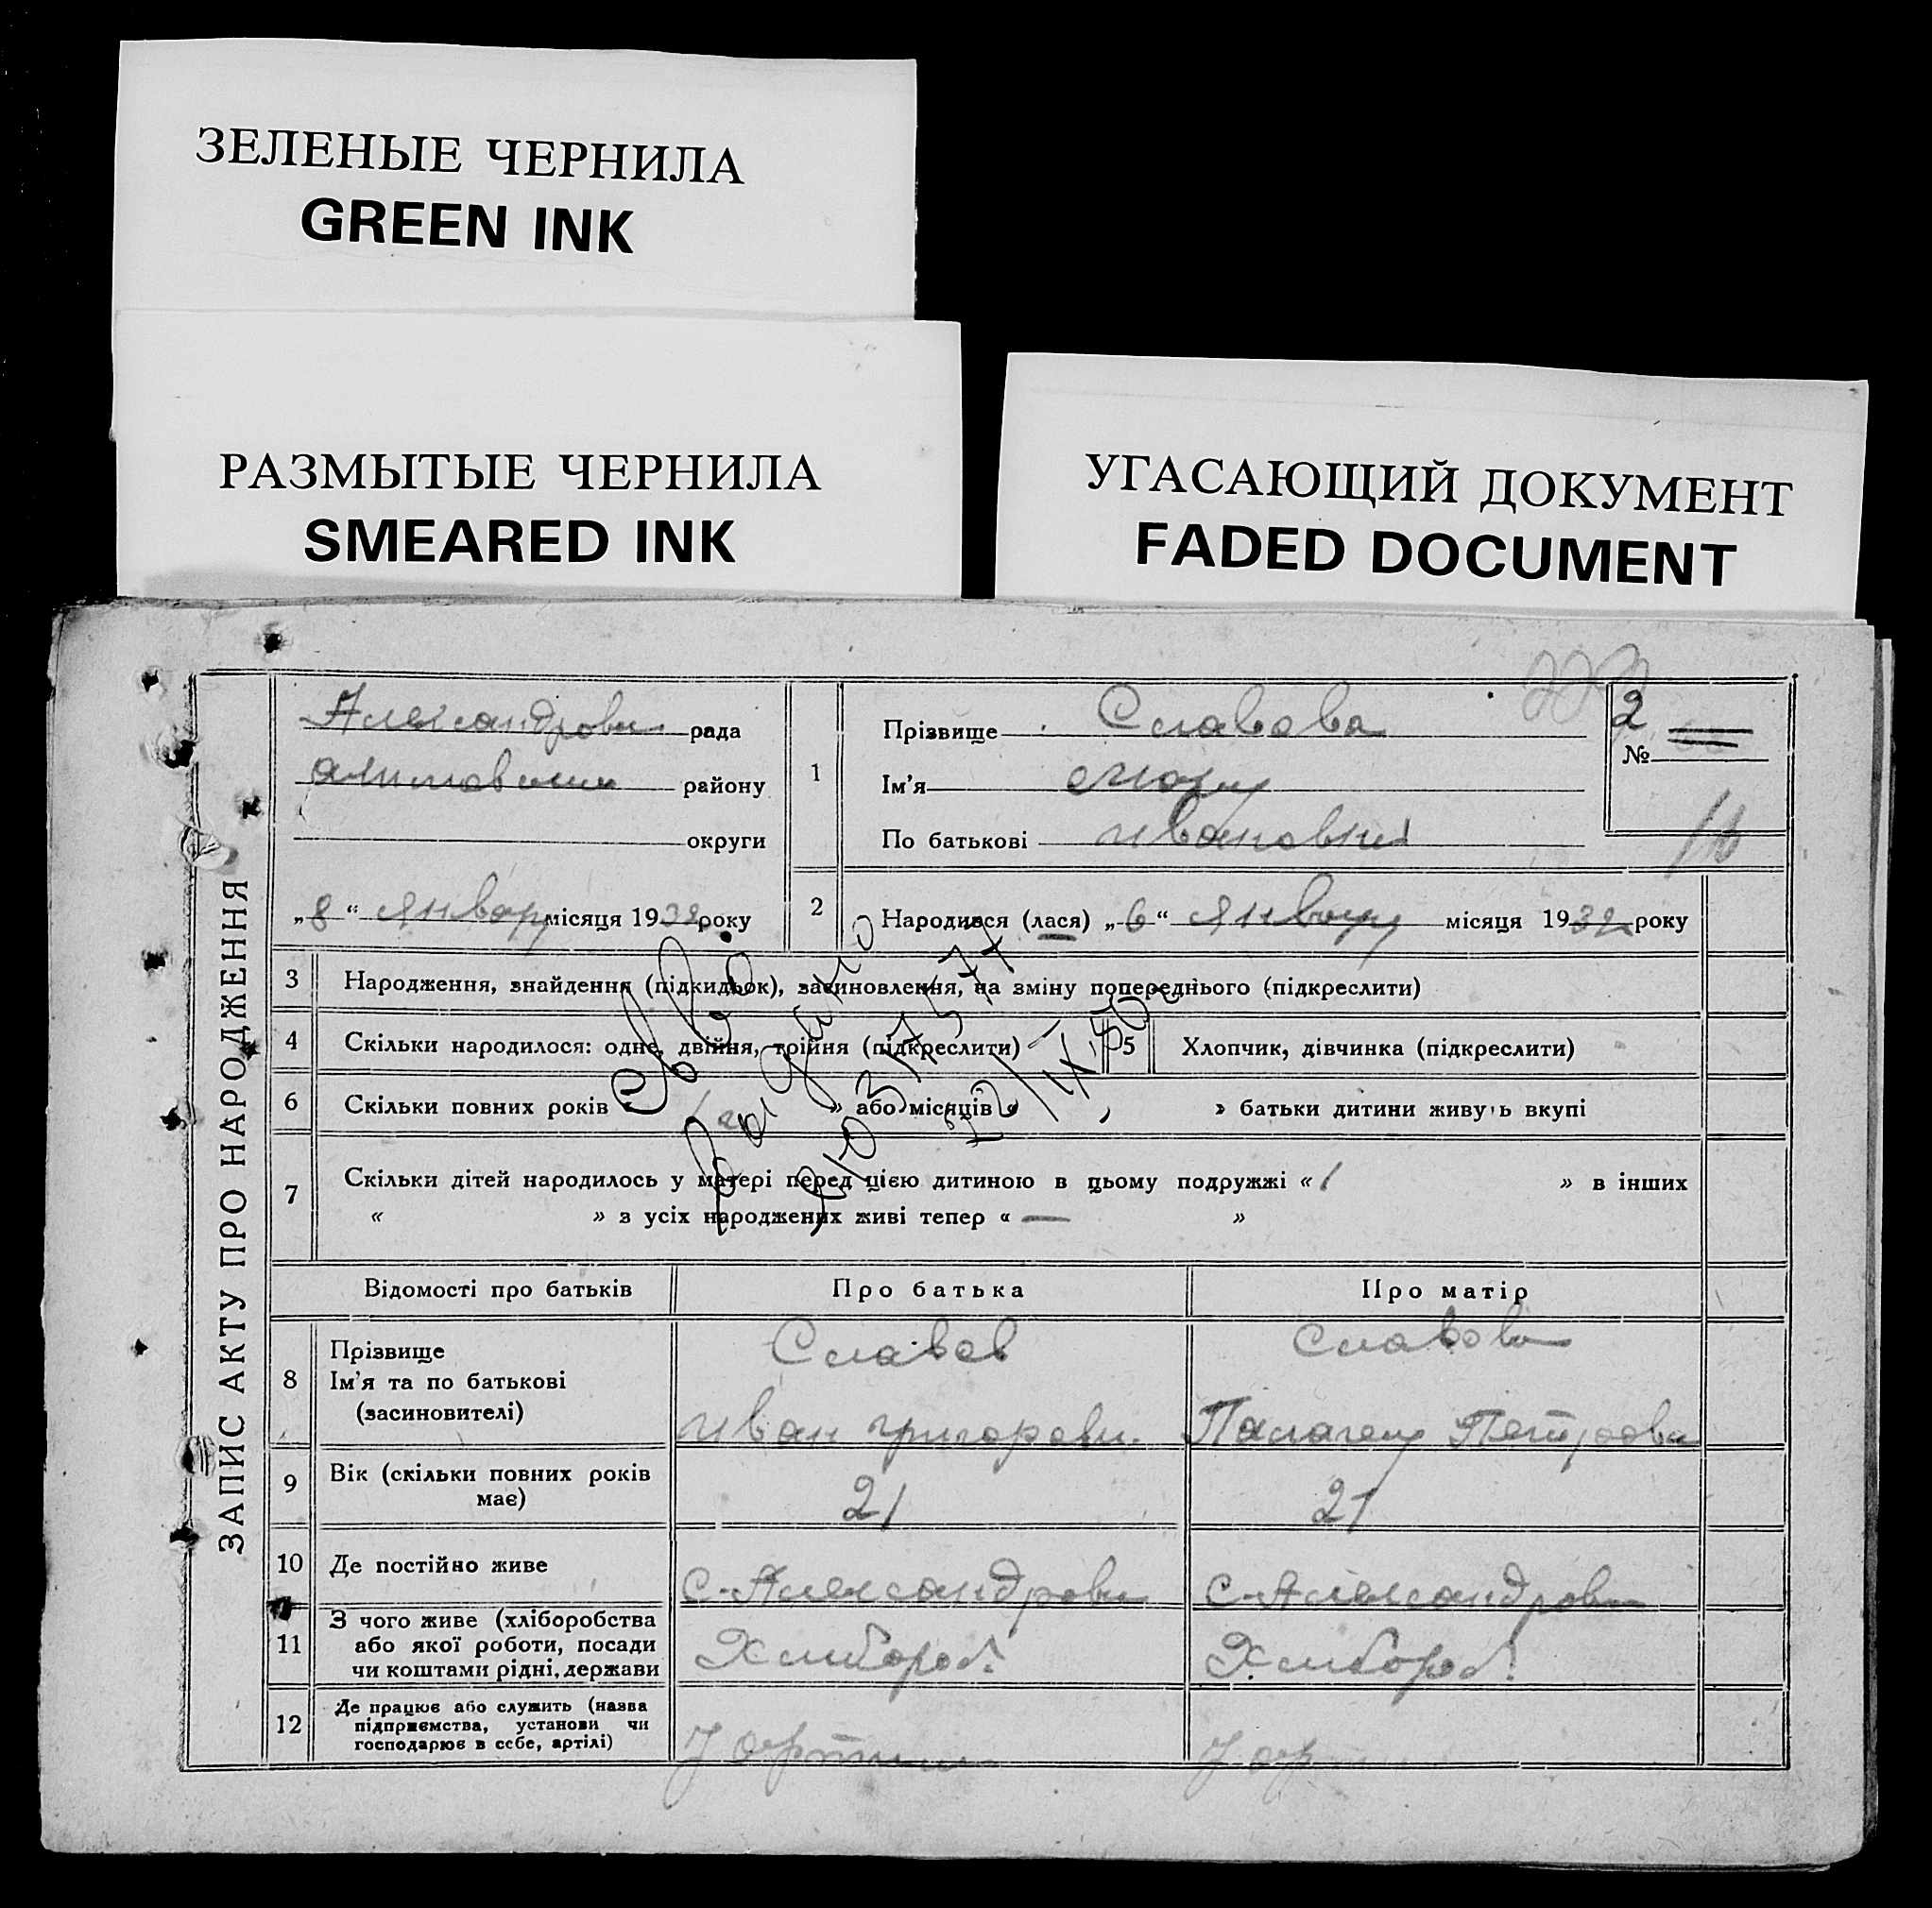 ЗЕЛЕНЫЕ ЧЕРНИЛА
GREEN INK
РАЗМЫТЫЕ ЧЕРНИЛА
SMEARED INK
УГАСАЮЩИЙ ДОКУМЕНТ
FADED DOCUMENT
ЗАПИС АКТУ ПРО НАРОДЖЕННЯ
рада
району
округи
„8“ января місяця 1932 року
1
Прізвище Славова
Ім'я
По батькові Ивановна
2
№
2 Народився (лася) „6“ января місяця 1932 року
3 Народження, знайдення (підкидьок), засиновлення, на зміну попереднього (підкреслити)
4 Скільки народилося: одне, двійня, трійня (підкреслити)
5 Хлопчик, дівчинка (підкреслити)
6 Скільки повних років « » або місяців « » батьки дитини живуть вкупі
7 Скільки дітей народилось у матері перед цією дитиною в цьому подружжі «1 » в інших
« » з усіх народжених живі тепер « — »
Св-во
Выдано
Відомості про батьків
Про батька
Про матір
8 Прізвище
Ім'я та по батькові
(засиновителі)
Славов
Иван Григорови.
Славова
Петрова
9 Вік (скільки повних років
має)
21
21
10 Де постійно живе
с-Александровка
с-Александровка
11 З чого живе (хліборобства
або якої роботи, посади
чи коштами рідні, держави
Хлибороб.
Хлибороб.
12 Де працює або служить (назва
підприємства, установи чи
господарює в себе, артілі)
У артили
У